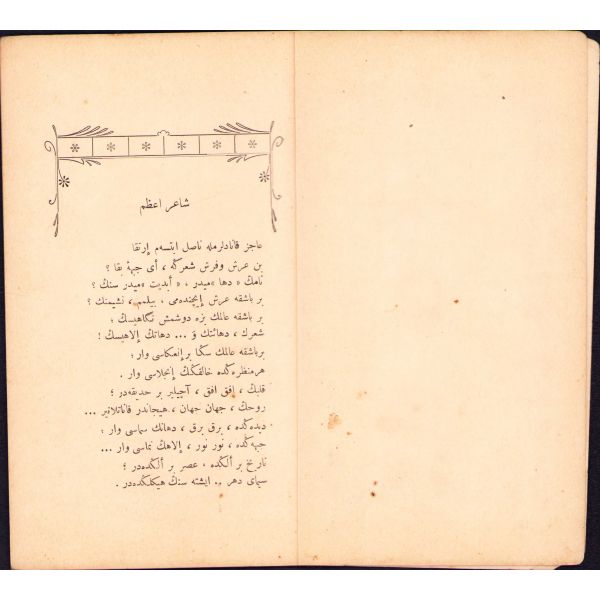 شاعر اعظم
عاجز قانادلرمله ناصل ایتسه‌م اِرتقا
بن عرش وفرش شعركه ، أی جبههٔ بقا ؟
نامك « دها »میدر ، « أبدیت »میدر سنك ؟
بر باشقه عرش اِیچنده‌می ، بیلمم ، نشیمنك ؟
بر باشقه عالمك بزه دوشمش نگاهیسك ؛
شعرك ، دهائتك وَ ... دهاتك اِلاهیسك !
برباشقه عالمك سكا بر اِنعكاسی وار ؛
هرمنظره‌كده خالقكك اِنجلاسی وار .
قلبك ، اُفق اُفق ، آچیلیر بر حدیقه‌در ؛
روحك ، جهان جهان ، هیجاندر قاناتلانیر ...
دیده‌كده ، برق برق ، دهانك سماسی وار ؛
جبهه‌كده ، نور نور ، اِلاهك تماسی وار ...
تاریخ بر ألكده ، عصر بر ألكده‌در ؛
سیمای دهر .. ایشته سنك هیكلكده‌در .